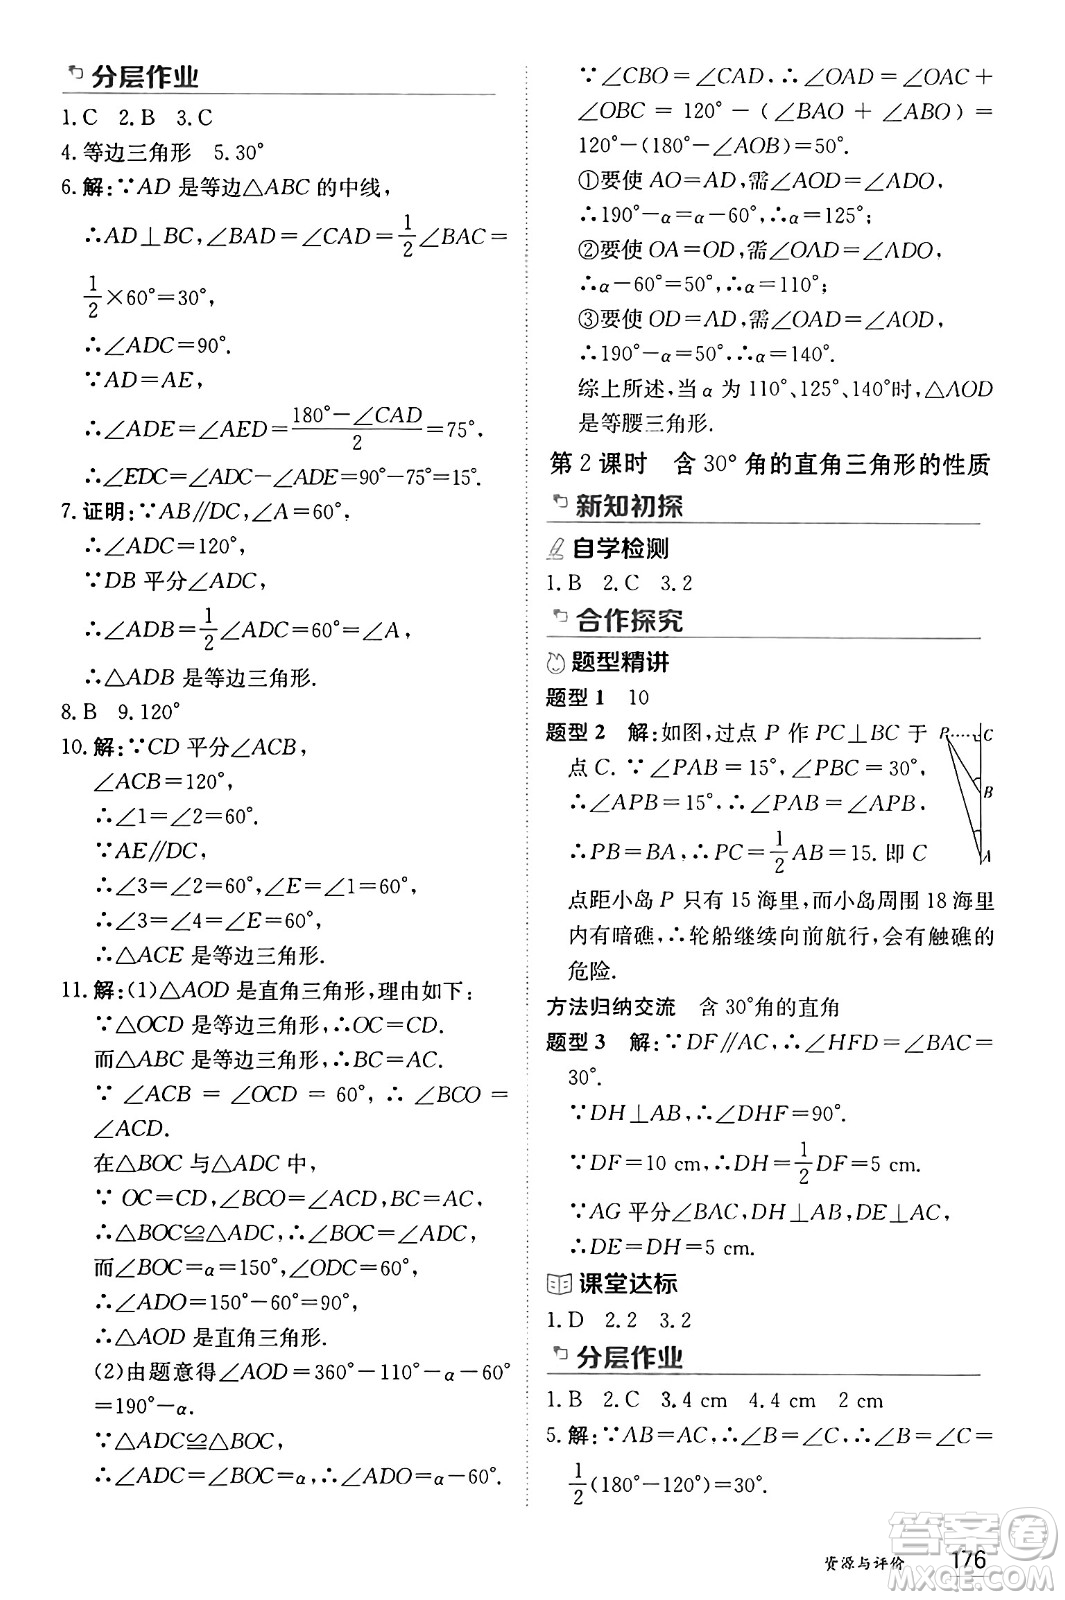 分层作业
1.C 2.B 3.C
4.等边三角形 5.30°
6.解:∵AD 是等边△ABC 的中线,
∴AD⊥BC,∠BAD=∠CAD=1/2∠BAC=
1/2×60°=30°,
∴∠ADC=90°.
∵AD=AE,
∴∠ADE=∠AED=(180°-∠CAD)/2=75°,
∴∠EDC=∠ADC-∠ADE=90°-75°=15°.
7.证明:∵AB∥DC,∠A=60°,
∴∠ADC=120°,
∵DB 平分∠ADC,
∴∠ADB=1/2∠ADC=60°=∠A,
∴△ADB 是等边三角形.
8.B 9.120°
10.解:∵CD 平分∠ACB,
∠ACB=120°,
∴∠1=∠2=60°.
∵AE∥DC,
∴∠3=∠2=60°,∠E=∠1=60°,
∴∠3=∠4=∠E=60°,
∴△ACE 是等边三角形.
11.解:(1)△AOD 是直角三角形,理由如下:
∵△OCD 是等边三角形,∴OC=CD.
而△ABC 是等边三角形,∴BC=AC.
∵ ∠ACB = ∠OCD = 60°,∴ ∠BCO =
∠ACD.
在△BOC 与△ADC 中,
∵ OC=CD,∠BCO=∠ACD,BC=AC,
∴△BOC≌△ADC,
而∠BOC=α=150°,∠ODC=60°,
∴∠ADO=150°-60°=90°,
∴△AOD 是直角三角形.
(2)由题意得∠AOD=360°-110°-α-60°
=190°-α.
∵△ADC≌△BOC,
∴∠ADC=∠BOC=α,∴∠ADO=α-60°.
∵∠CBO=∠CAD,∴∠OAD=∠OAC+
∠OBC = 120° - (∠BAO + ∠ABO) =
120°-(180°-∠AOB)=50°.
①要使 AO=AD,需∠AOD=∠ADO,
∴190°-α=α-60°,∴α=125°;
②要使 OA=OD,需∠OAD=∠ADO,
∴α-60°=50°,∴α=110°;
③要使 OD=AD,需∠OAD=∠AOD,
∴190°-α=50°,∴α=140°.
综上所述,当 α 为 110°、125°、140°时,△AOD
是等腰三角形.
第 2 课时 含 30° 角的直角三角形的性质
新知初探
自学检测
1.B 2.C 3.2
合作探究
题型精讲
题型 1 10
题型 2 解:如图,过点 P 作 PC⊥BC 于
点 C. ∵∠PAB=15°,∠PBC=30°,
∴∠APB=15°,∴∠PAB=∠APB,
∴PB=BA,∴PC=1/2AB=15. 即 C
点距小岛 P 只有 15 海里,而小岛周围 18 海里
内有暗礁,∴轮船继续向前航行,会有触礁的
危险.
P C
B
A
方法归纳交流 含 30°角的直角
题型 3 解:∵DF∥AC,∴∠HFD=∠BAC=
30°.
∵DH⊥AB,∴∠DHF=90°.
∵DF=10 cm,∴DH=1/2DF=5 cm.
∵AG 平分∠BAC,DH⊥AB,DE⊥AC,
∴DE=DH=5 cm.
课堂达标
1.D 2.2 3.2
分层作业
1.B 2.C 3.4 cm 4.4 cm 2 cm
5.解:∵AB=AC,∴∠B=∠C,∴∠B=∠C=
1/2(180°-120°)=30°.
资源与评价 176
答案卷
MXQE.COM